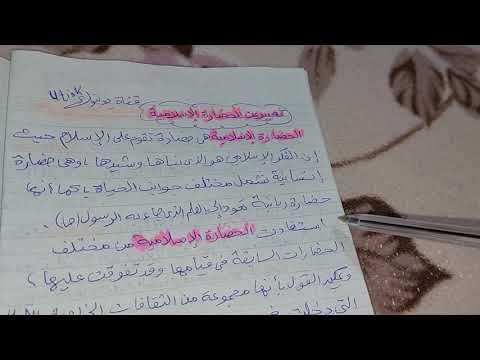 قناة يوتوك
تعريف الحضارة الإسلامية
الحضارة الإسلامية هي حضارة تقوم على الإسلام حيث
إن الفكر الإسلامي هو الذي بناها وشيدها، وهي حضارة
إنسانية تشمل مختلف جوانب الحياة، كما أنها
حضارة ربانية تعود إلى العلم الذي جاء به الرسول (ص).
استفادت الحضارة الإسلامية من مختلف
الحضارات السابقة في قيامها وقد تفوقت عليها،
ويمكن القول بأنها مجموعة من الثقافات
التي دخلت